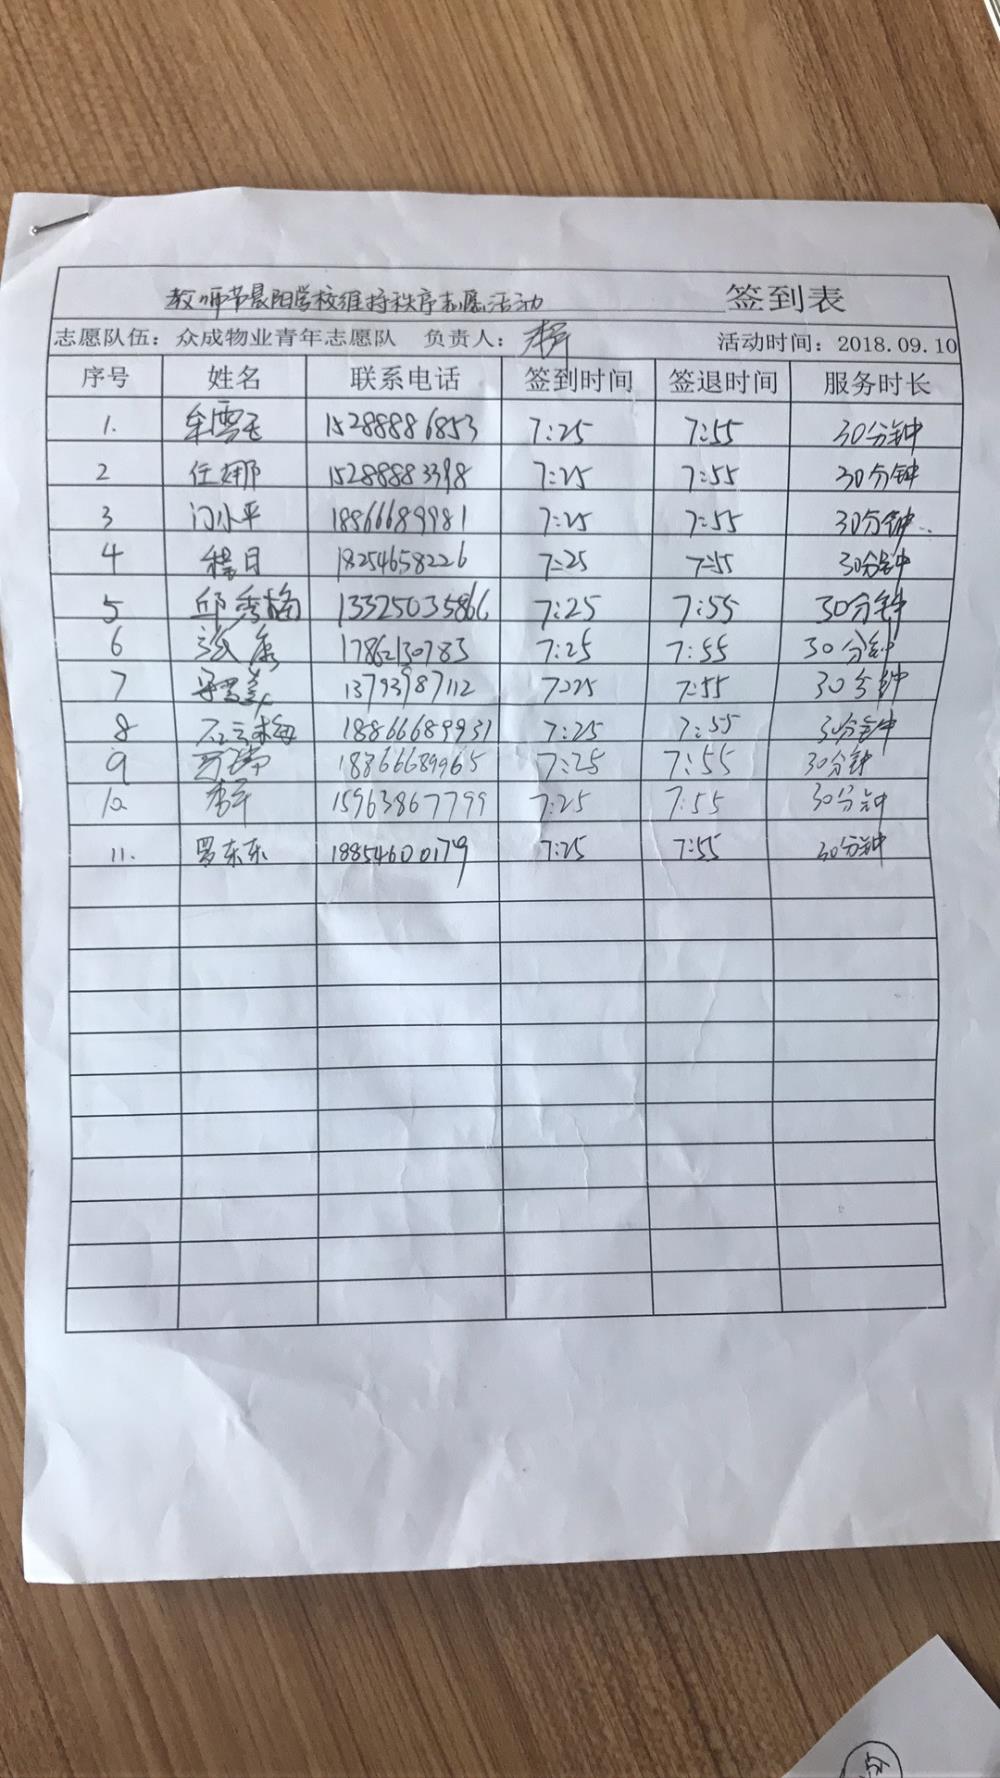 教师节晨阳学校维持秩序志愿活动 签到表
志愿队伍：众成物业青年志愿队 负责人： 活动时间：2018.09.10
序号 姓名 联系电话 签到时间 签退时间 服务时长
1. 牟雪飞 15288886853 7:25 7:55 30分钟
2 任娜 15288883398 7:25 7:55 30分钟
3 门小平 18866689981 7:25 7:55 30分钟
4 程日 18254658226 7:25 7:55 30分钟
5 邱秀梅 13325035866 7:25 7:55 30分钟
6 张康 17862130783 7:25 7:55 30分钟
7 13793987112 7:25 7:55 30分钟
8 石云梅 18866689931 7:25 7:55 30分钟
9 18866689965 7:25 7:55 30分钟
10 15963867799 7:25 7:55 30分钟
11. 罗东东 18854600179 7:25 7:55 30分钟